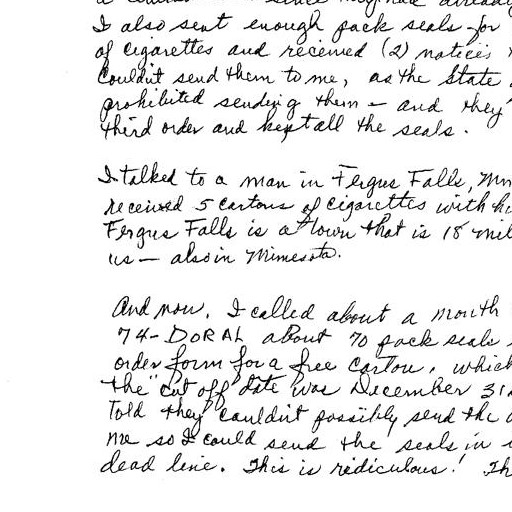 I also sent enough pack seals for
of cigarettes and received (2) notices
couldn't send them to me, as the State
prohibited sending them — and they
third order and kept all the seals.
I talked to a man in Fergus Falls, Mn
received 5 cartons of cigarettes with
Fergus Falls is a town that is 18 mil
us — also in Minnesota.
And now, I called about a month
74-DORAL about 70 pack seals
order form for a free carton, which
the "cut off" date was December 31
Told they couldn't possibly send the
me so I could send the seals in
dead line. This is ridiculous! Th